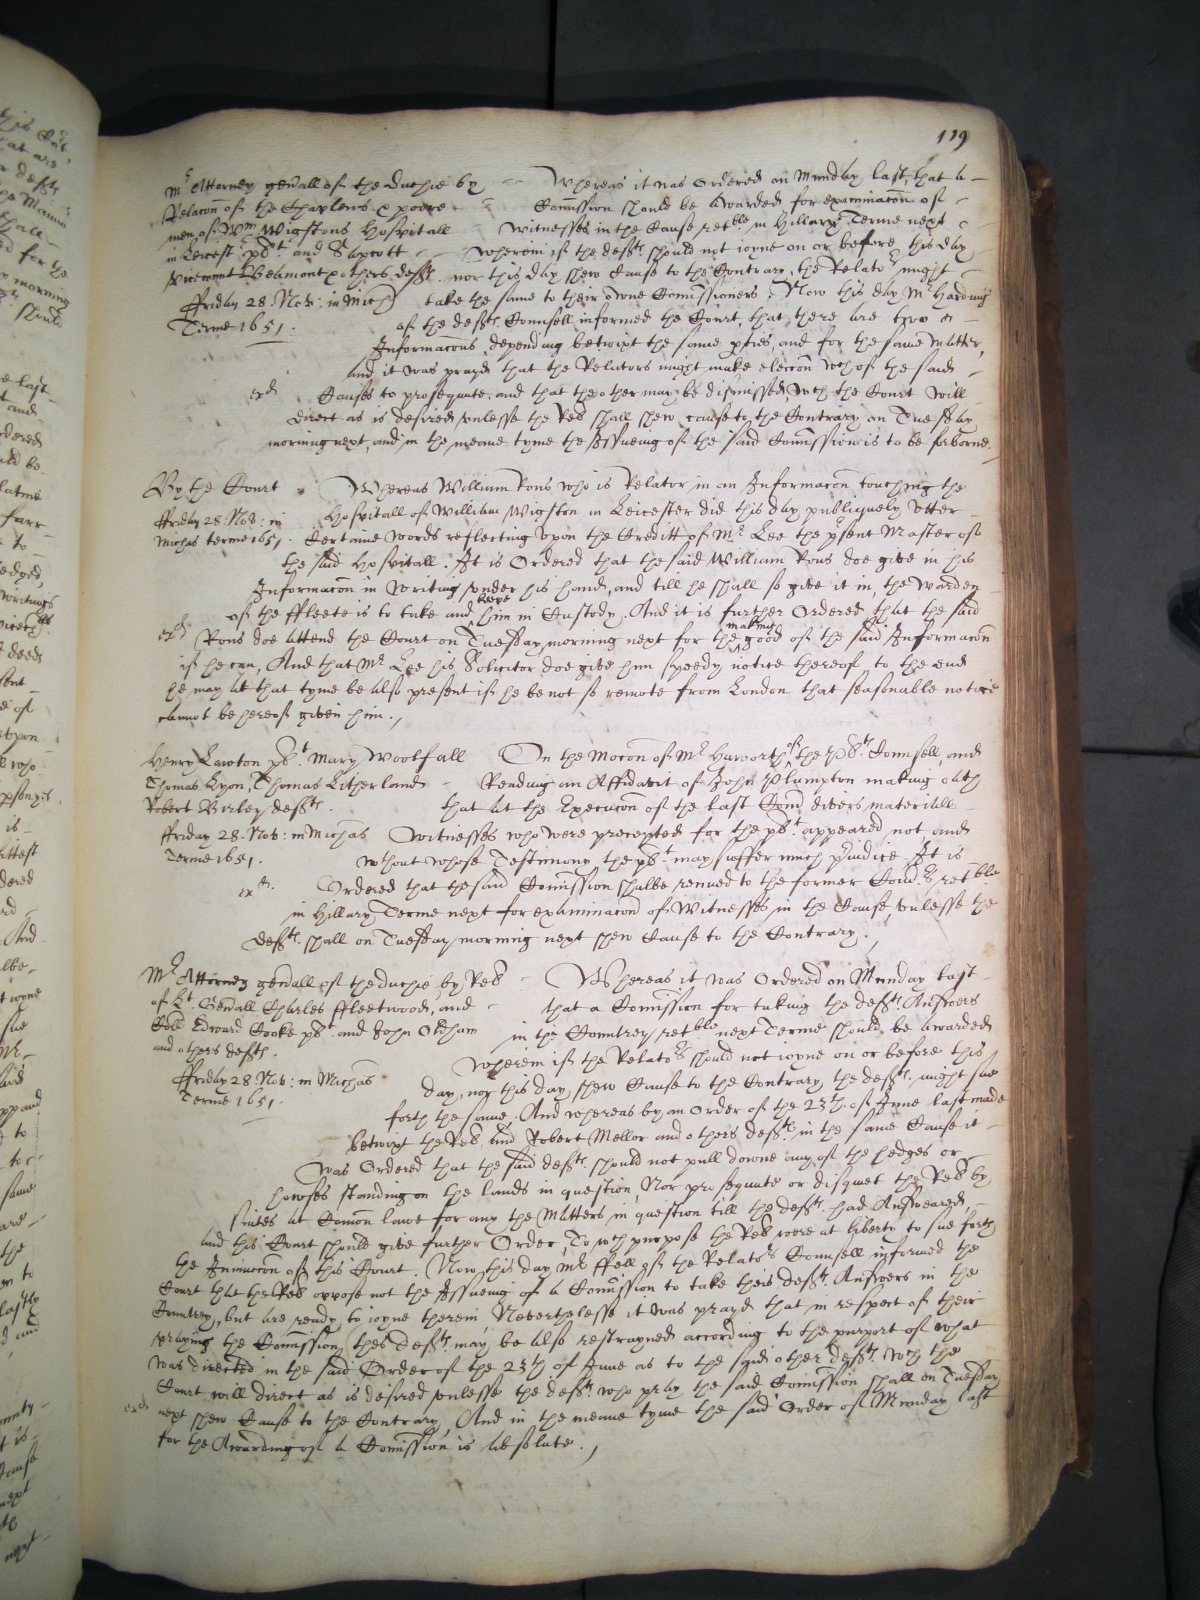 119
Mr Attorney gen̄all of the Duchie by -- Whereas it was Ordered on Munday last, that a -
Relacōn of the Chaplens & poore - Com̄ission should be Awarded for examinacōn of -
men of Wm Wigstons Hospitall - Witnesses in the Cause retble in Hillary Terme next -
in Leicestr plt and Saycott - - wherein if the defts should not ioyne on or before this day
Vicecount Beamont & others defts nor this day shew Cause to the Contrary, the Relators might -
Friday 28 Nov: in Mich take the same to their owne Com̄issioners. Now this day Mr Harding
Terme 1651. of the defts Counsell informed the Court, that there are two -
Informacōns depending betwixt the same pties, and for the same matter,
and it was prayd that the Relators might make eleccōn wch of the said -
Causes to prosequute, and that the other may be dismissed, wch the Court will -
direct as is desired vnlesse the Rels shall shew cause to the Contrary on Tuesday
morning next, and in the meane tyme the Issueing of the said Com̄ission is to be forborne.
By the Court Whereas William Pons who is Relator in an Informacōn touching the
Friday 28 Nov: in Hospitall of William Wigston in Leicester did this day publiquely vtter -
Michās terme 1651. Certaine words reflecting vpon the Creditt of Mr Lee the pṡent Master of
the said Hospitall. It is Ordered that the said William Pons doe give in his
Informacōn in writing vnder his hand, and till he shall so give it in, the Warden
of the Fleete is to take and keepe him in Custody. And it is further Ordered that the said
Pons doe attend the Court on Tuesday morning next for the making good of the said Informacōn
if he can, And that Mr Lee his Solicitor doe give him speedy notice thereof, to the end
he may at that tyme be also present if he be not so remote from London that seasonable notice
cannot be hereof given him.
Henry Lawton plt Mary Woolfall On the Mocōn of Mr Haworth of the plts Counsell, and
Thomas Lyon, Thomas Litherland Reading an Affidavit of John Plumpton making oath
Robert Birley defts. that at the Execucōn of the last Com̄ divers materiall -
Friday 28 Nov: in Michās Witnesses who were precepted for the plt appeared not, and
Terme 1651. wthout whose Testimony the plt may suffer much pr̄iudice. It is
Ordered that the said Com̄ission shalbe renued to the former Com̄rs retble
in Hillary Terme next for examinacōn of Witnesses in the Cause, vnlesse the
defts shall on Tuesday morning next shew Cause to the Contrary.
Mr Attorney gen̄all of the duchie, by Rels - Whereas it was Ordered on Munday last -
of Lt Gen̄all Charles Fleetwood, and - that a Com̄ission for taking the defts Answers
Coll Edward Cooke plt and John Oldham in the Countrey retble next Terme should be awarded
and others defts. Wherein if the Relators should not ioyne on or before this
Friday 28 Nov: in Michās day, nor this day shew Cause to the Contrary, the defts might sue
Terme 1651. forth the same. And whereas by an Order of the 23th of June last made
betwixt the Rels and Robert Mellor and others defts in the same Cause it -
was Ordered that the said defts should not pull downe any of the hedges or -
howses standing on the lands in question, Nor prosequute or disquiet the Rels by
suites at Com̄on lawe for any the Matters in question till the defts had Answeared -
and this Court should give further Order, To wch purpose the Rels were at liberty to sue forth
the Iniuncōn of this Court. Now this day Mr Fell of the Relators Counsell informed the
Court that the Rels oppose not the Issueing of a Com̄ission to take theis defts Answers in the
Countrey, but are ready to ioyne therein. Neverthelesse it was prayd that in respect of their
praying the Com̄ission, thes defts may be also restrayned according to the purport of what
was directed in the said Order of the 23th of June as to the said other defts wch the
Court will direct as is desired vnlesse the defts who pray the said Com̄ission shall on Tuesday
next shew Cause to the Contrary, And in the meane tyme the said Order of Munday last
for the Awarding of a Com̄ission is absolute.